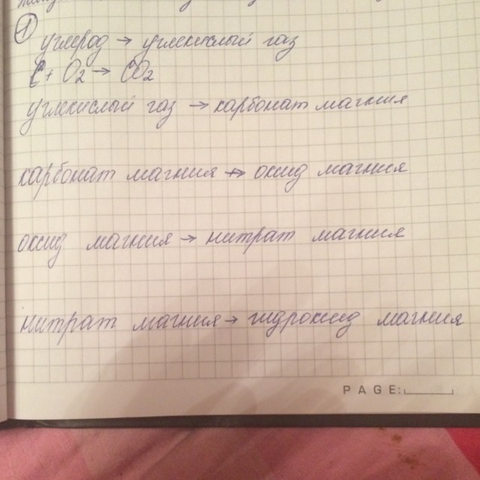 1
углерод → углекислый газ
C + O2 → CO2
углекислый газ → карбонат магния
карбонат магния → оксид магния
оксид магния → нитрат магния
нитрат магния → гидроксид магния
PAGE: